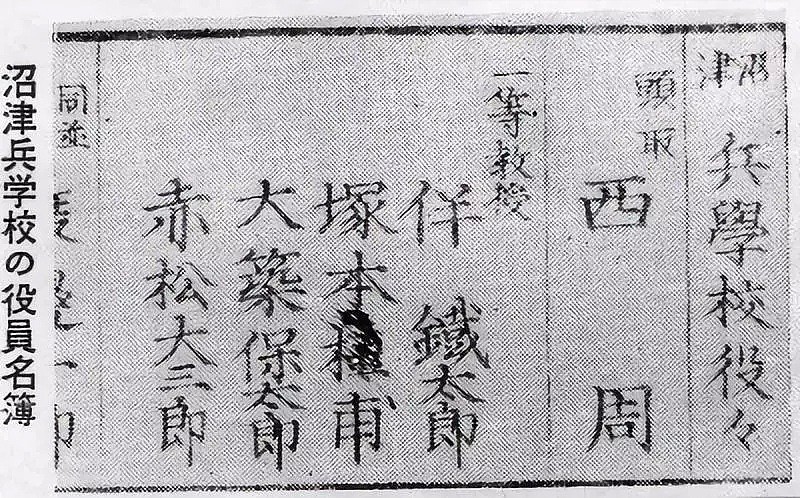 沼津
兵學校役々
頭取
西 周
一等教授
伴 鐵太郎
塚本 甫
大築保太郎
赤松大三郎
同並
沼津兵学校の役員名簿